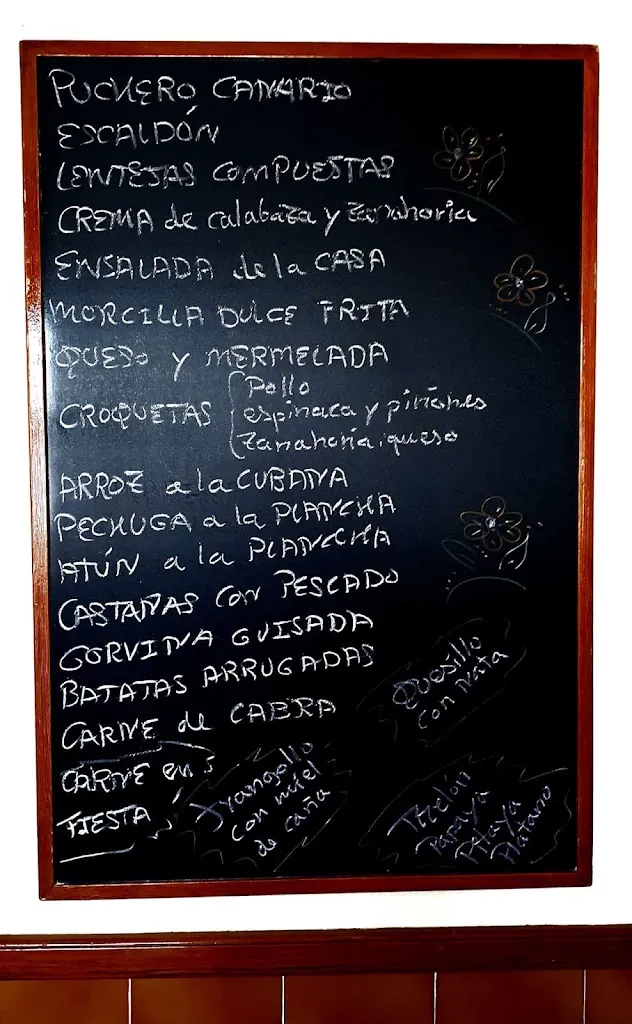 PUCHERO CANARIO
ESCALDÓN
LENTEJAS COMPUESTAS
CREMA de calabaza y zanahoria
ENSALADA de la CASA
MORCILLA DULCE FRITA
QUESO y MERMELADA
CROQUETAS
Pollo
espinaca y piñones
zanahoria, queso
ARROZ a la CUBANA
PECHUGA a la PLANCHA
ATÚN a la PLANCHA
CASTAÑAS con PESCADO
CORVINA GUISADA
BATATAS ARRUGADAS
CARNE de CABRA
CARNE en
FIESTA
Quesillo
con nata
Frangollo
con miel
de caña
Papaya
Pitaya
Plátano